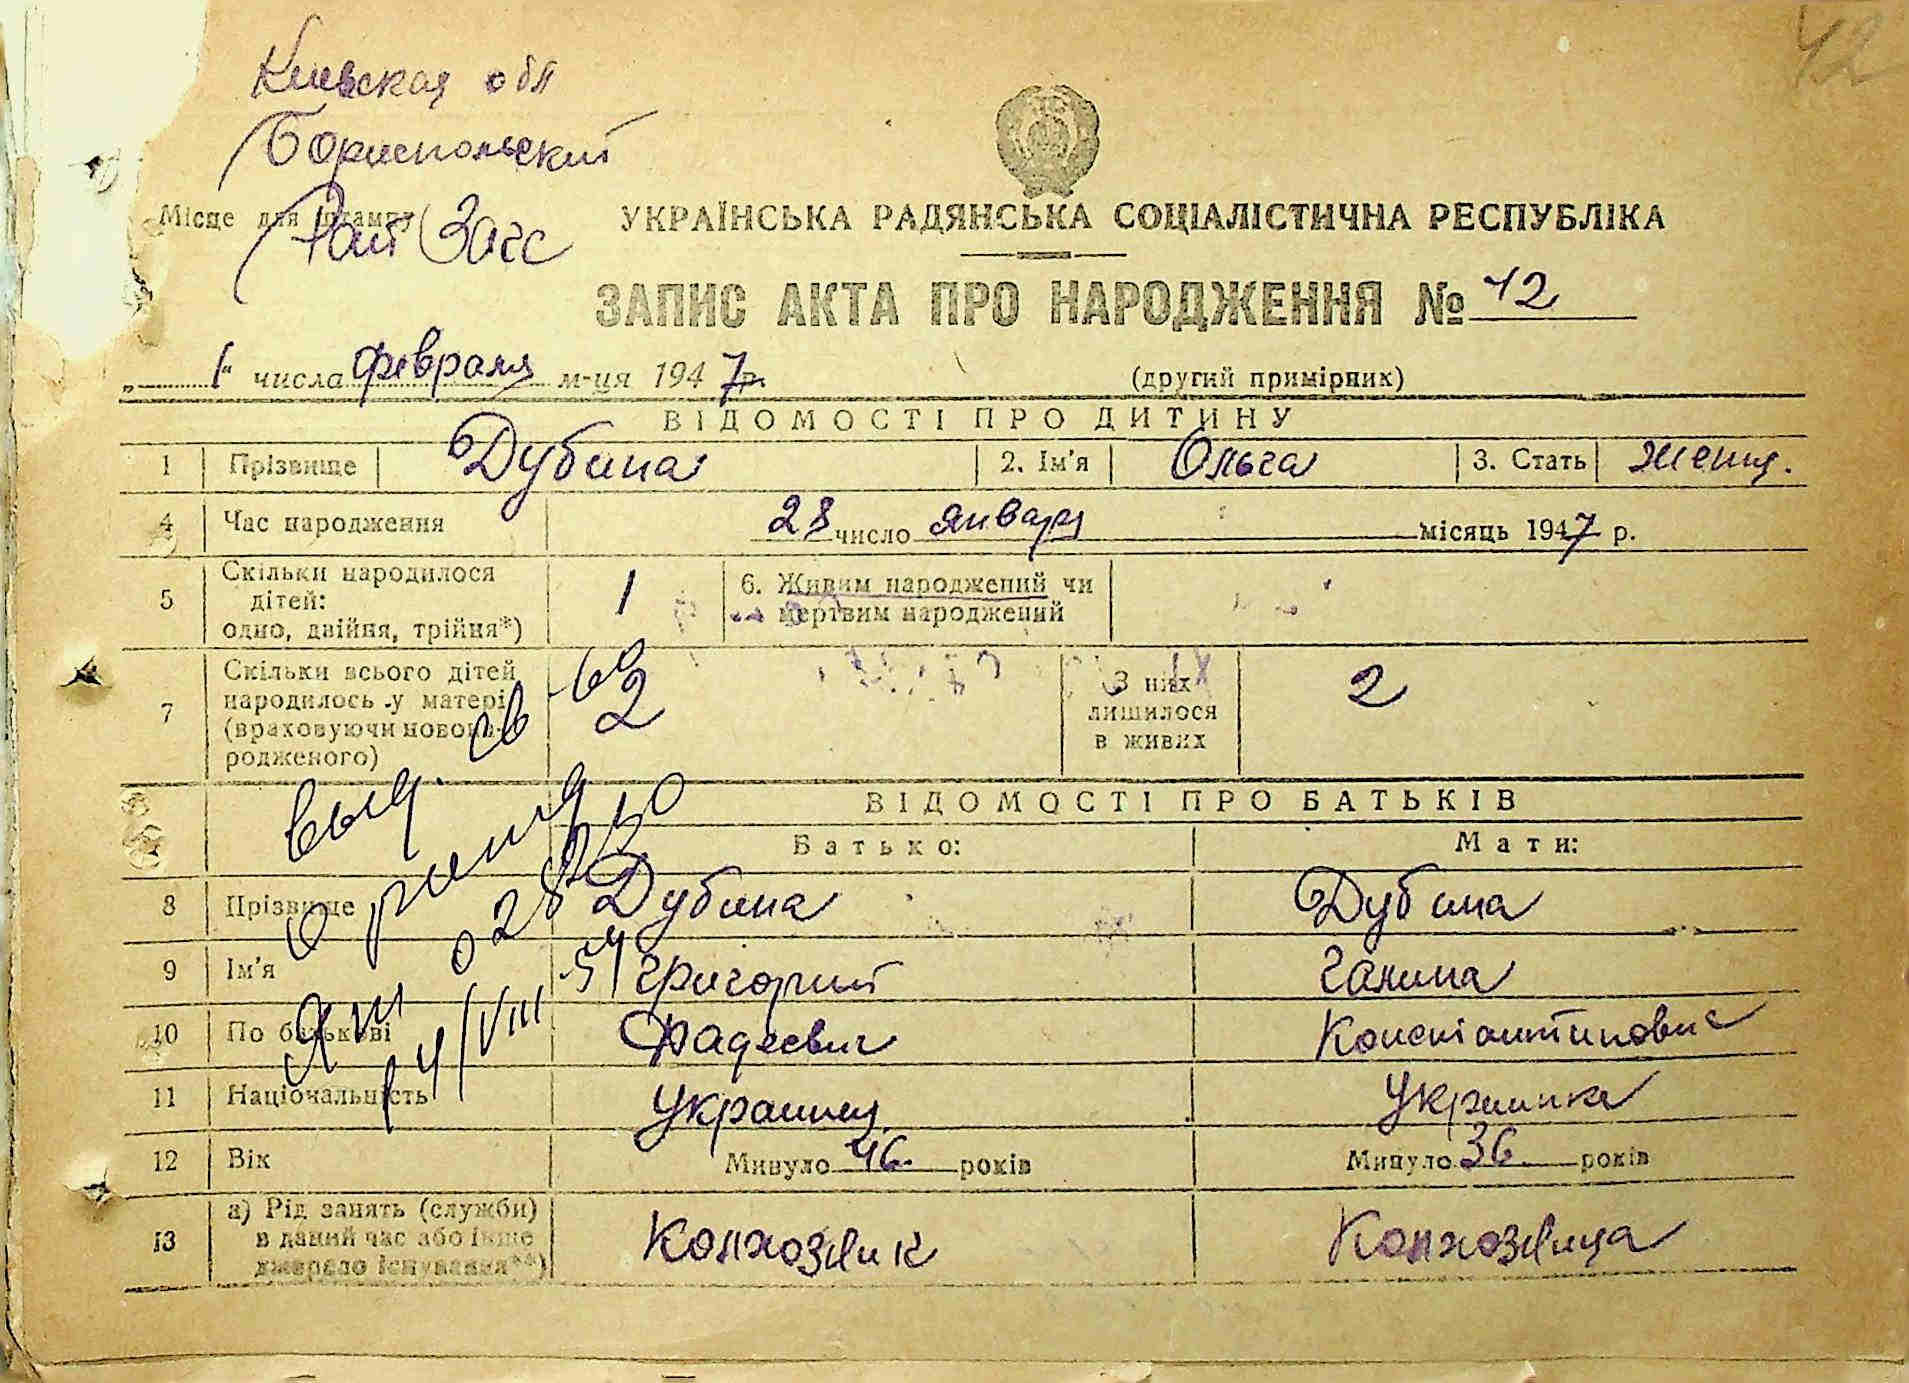 42
Киевская обл
Бориспольский
Місце для штампу
Рай Загс
УКРАЇНСЬКА РАДЯНСЬКА СОЦІАЛІСТИЧНА РЕСПУБЛІКА
ЗАПИС АКТА ПРО НАРОДЖЕННЯ № 42
„ 1 “ числа февраля м-ця 1947 р.
(другий примірник)
ВІДОМОСТІ ПРО ДИТИНУ
1 Прізвище Дубина 2. Ім'я Ольга 3. Стать женщ.
4 Час народження 28 число января місяць 1947 р.
5 Скільки народилося дітей: одно, двійня, трійня*) 1 6. Живим народжений чи мертвим народжений
7 Скільки всього дітей народилось у матері (враховуючи новонародженого) 2 З них лишилося в живих 2
выд. св-во
ВІДОМОСТІ ПРО БАТЬКІВ
Батько: Мати:
8 Прізвище Дубина Дубина
9 Ім'я Григорий Галина
10 По батькові Фадеевич Константиновна
11 Національність Украинец Украинка
12 Вік Минуло 46 років Минуло 36 років
13 а) Рід занять (служби) в даний час або інше джерело існування**) Колхозник Колхозница